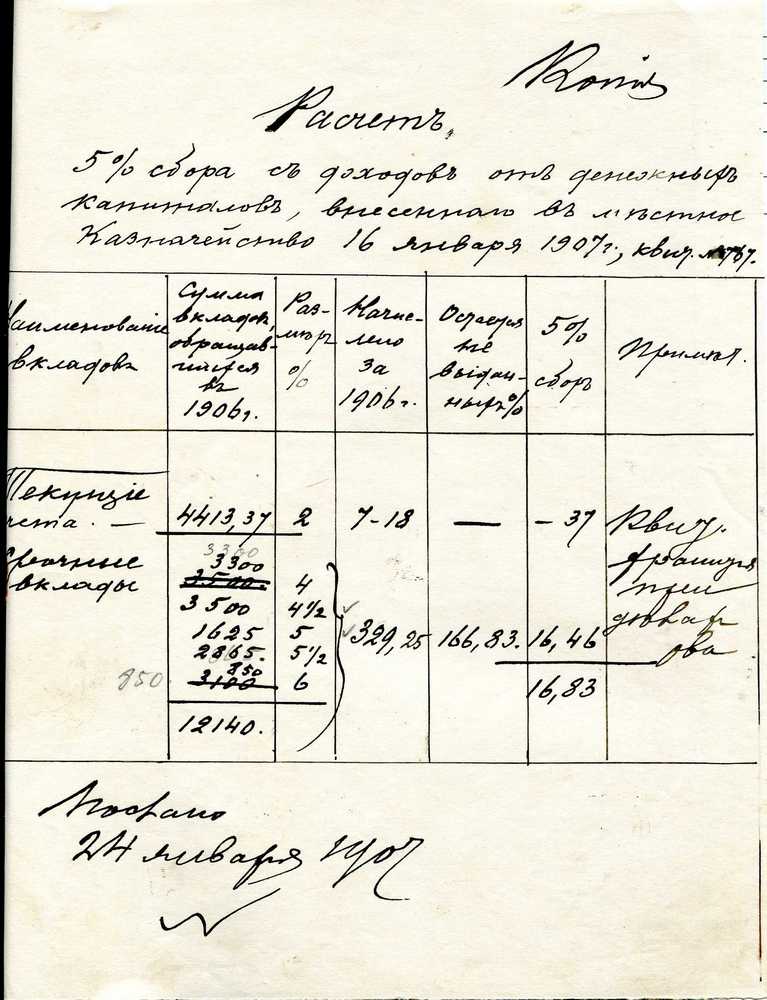 Копія
Расчетъ
5% сбора съ доходовъ отъ денежныхъ
капиталовъ, внесеннаго въ мѣстное
Казначейство 16 января 1907 г., квит. №
Наименованіе
вкладовъ
Сумма
вкладовъ,
обращав-
шихся
въ
1906 г.
Раз-
мѣръ
%
Начис-
лено
за
1906 г.
Остается
не
выдан-
ныхъ %
5%
сборъ
Примѣч.
Текущіе
счета. — 4413,37 2 7-18 — - 37 Квит.
Срочные
вклады
3300
3300
3500. 4
3500 4½
1625 5
2865. 5½
850
850 3100 6
329,25 166,83. 16,46
16,83
12140.
хранится
при
Послано
24 января 1907